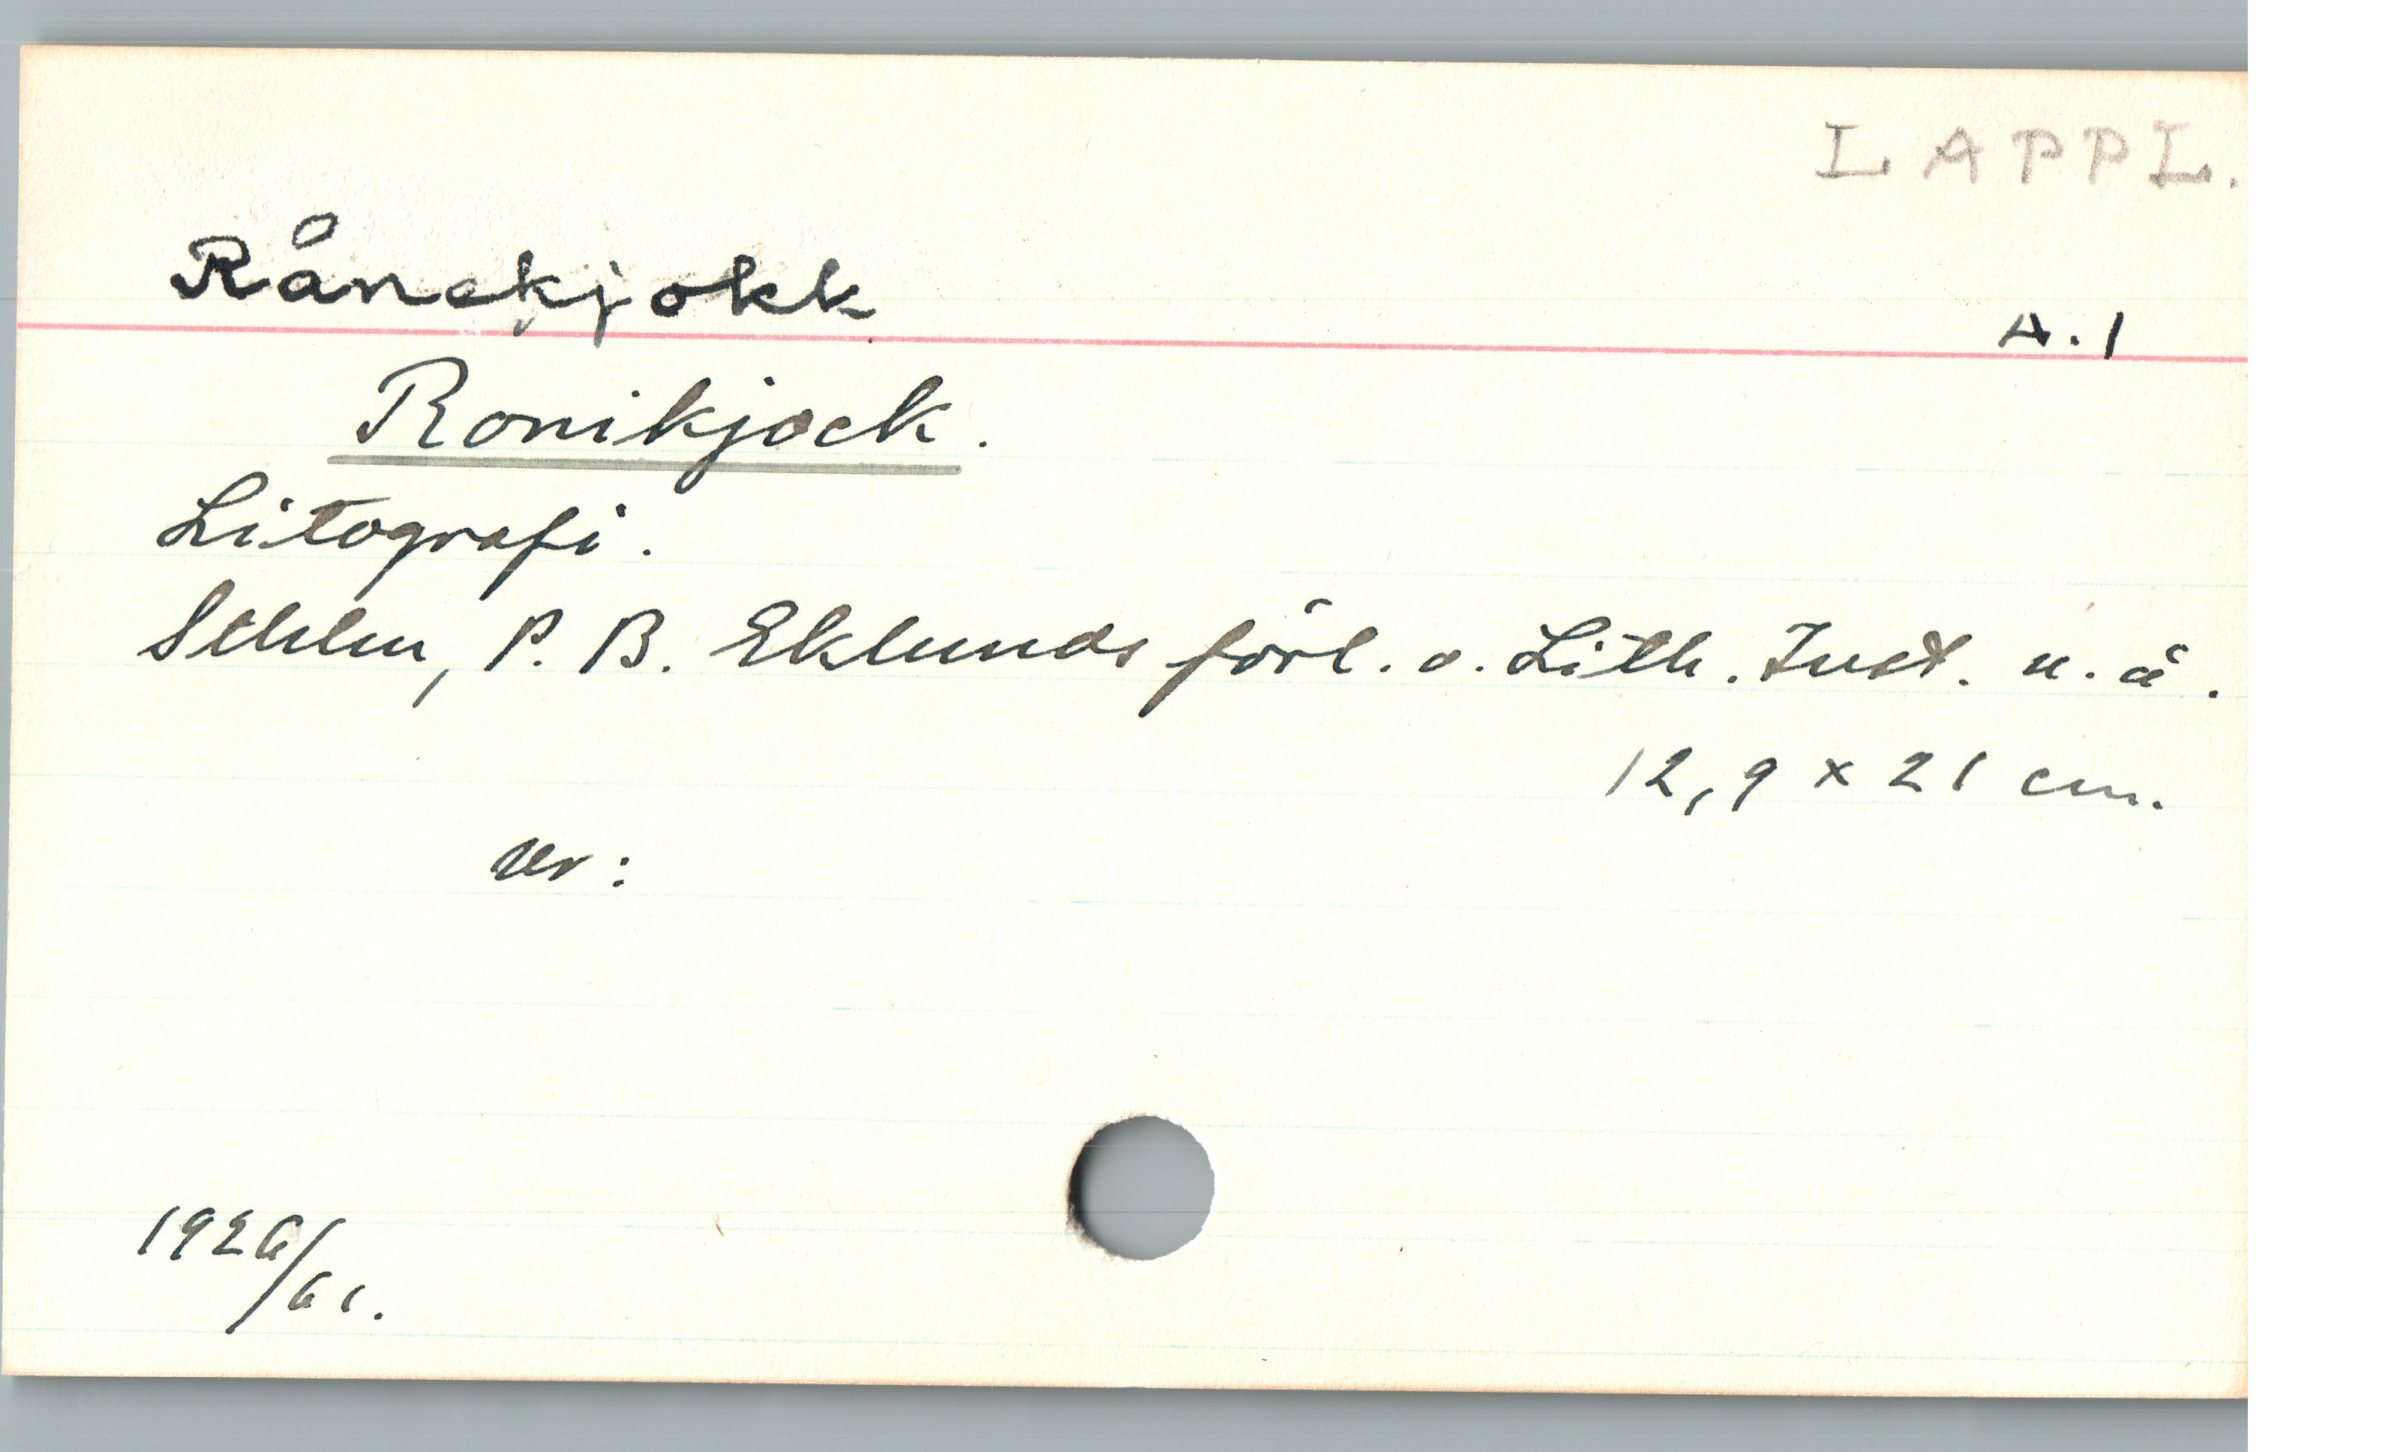 LAPPL.
Rånekjokk
A.1
Ronikjock.
Litografi.
Sthlm, P. B. Eklunds förl. o. Lith. Inst. u. å.
12,9 x 21 cm.
Ur:
1926/61.